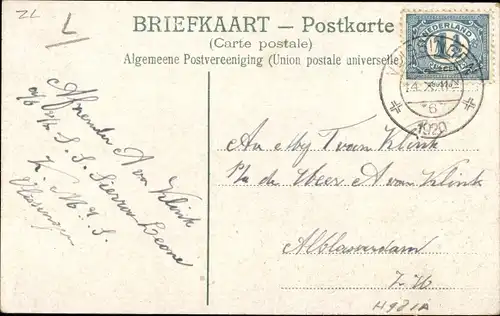 ZL
L
BRIEFKAART – Postkarte
(Carte postale)
Algemeene Postvereeniging (Union postale universelle)
NEDERLAND
1½
CENT
1920
Afzender A van Klink
a/b v/h S. S. Sierra Leone
K. M. & S.
Vlissingen
Aan Mej T van Klink
P/a de Heer A van Klink
Alblasserdam
Z-H
H981A